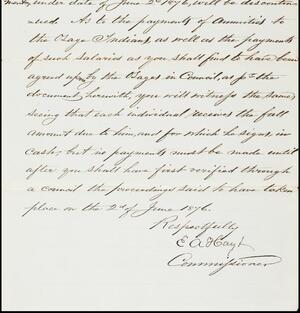 under date of June 2d 1876, will be discontin
ued. As to the payments of Annuities to
the Osage Indians, as well as the payments
of such salaries as you shall find to have been
agreed upon by the Osages in Council, as per the
document, herewith, you will witness the same,
seeing that each individual receives the full
amount due to him, and for which he signs, in
cash, but no payments must be made until
after you shall have first verified through
a council the proceedings said to have taken
place on the 2d of June 1876.
Respectfully
E A Hayt
Commissioner